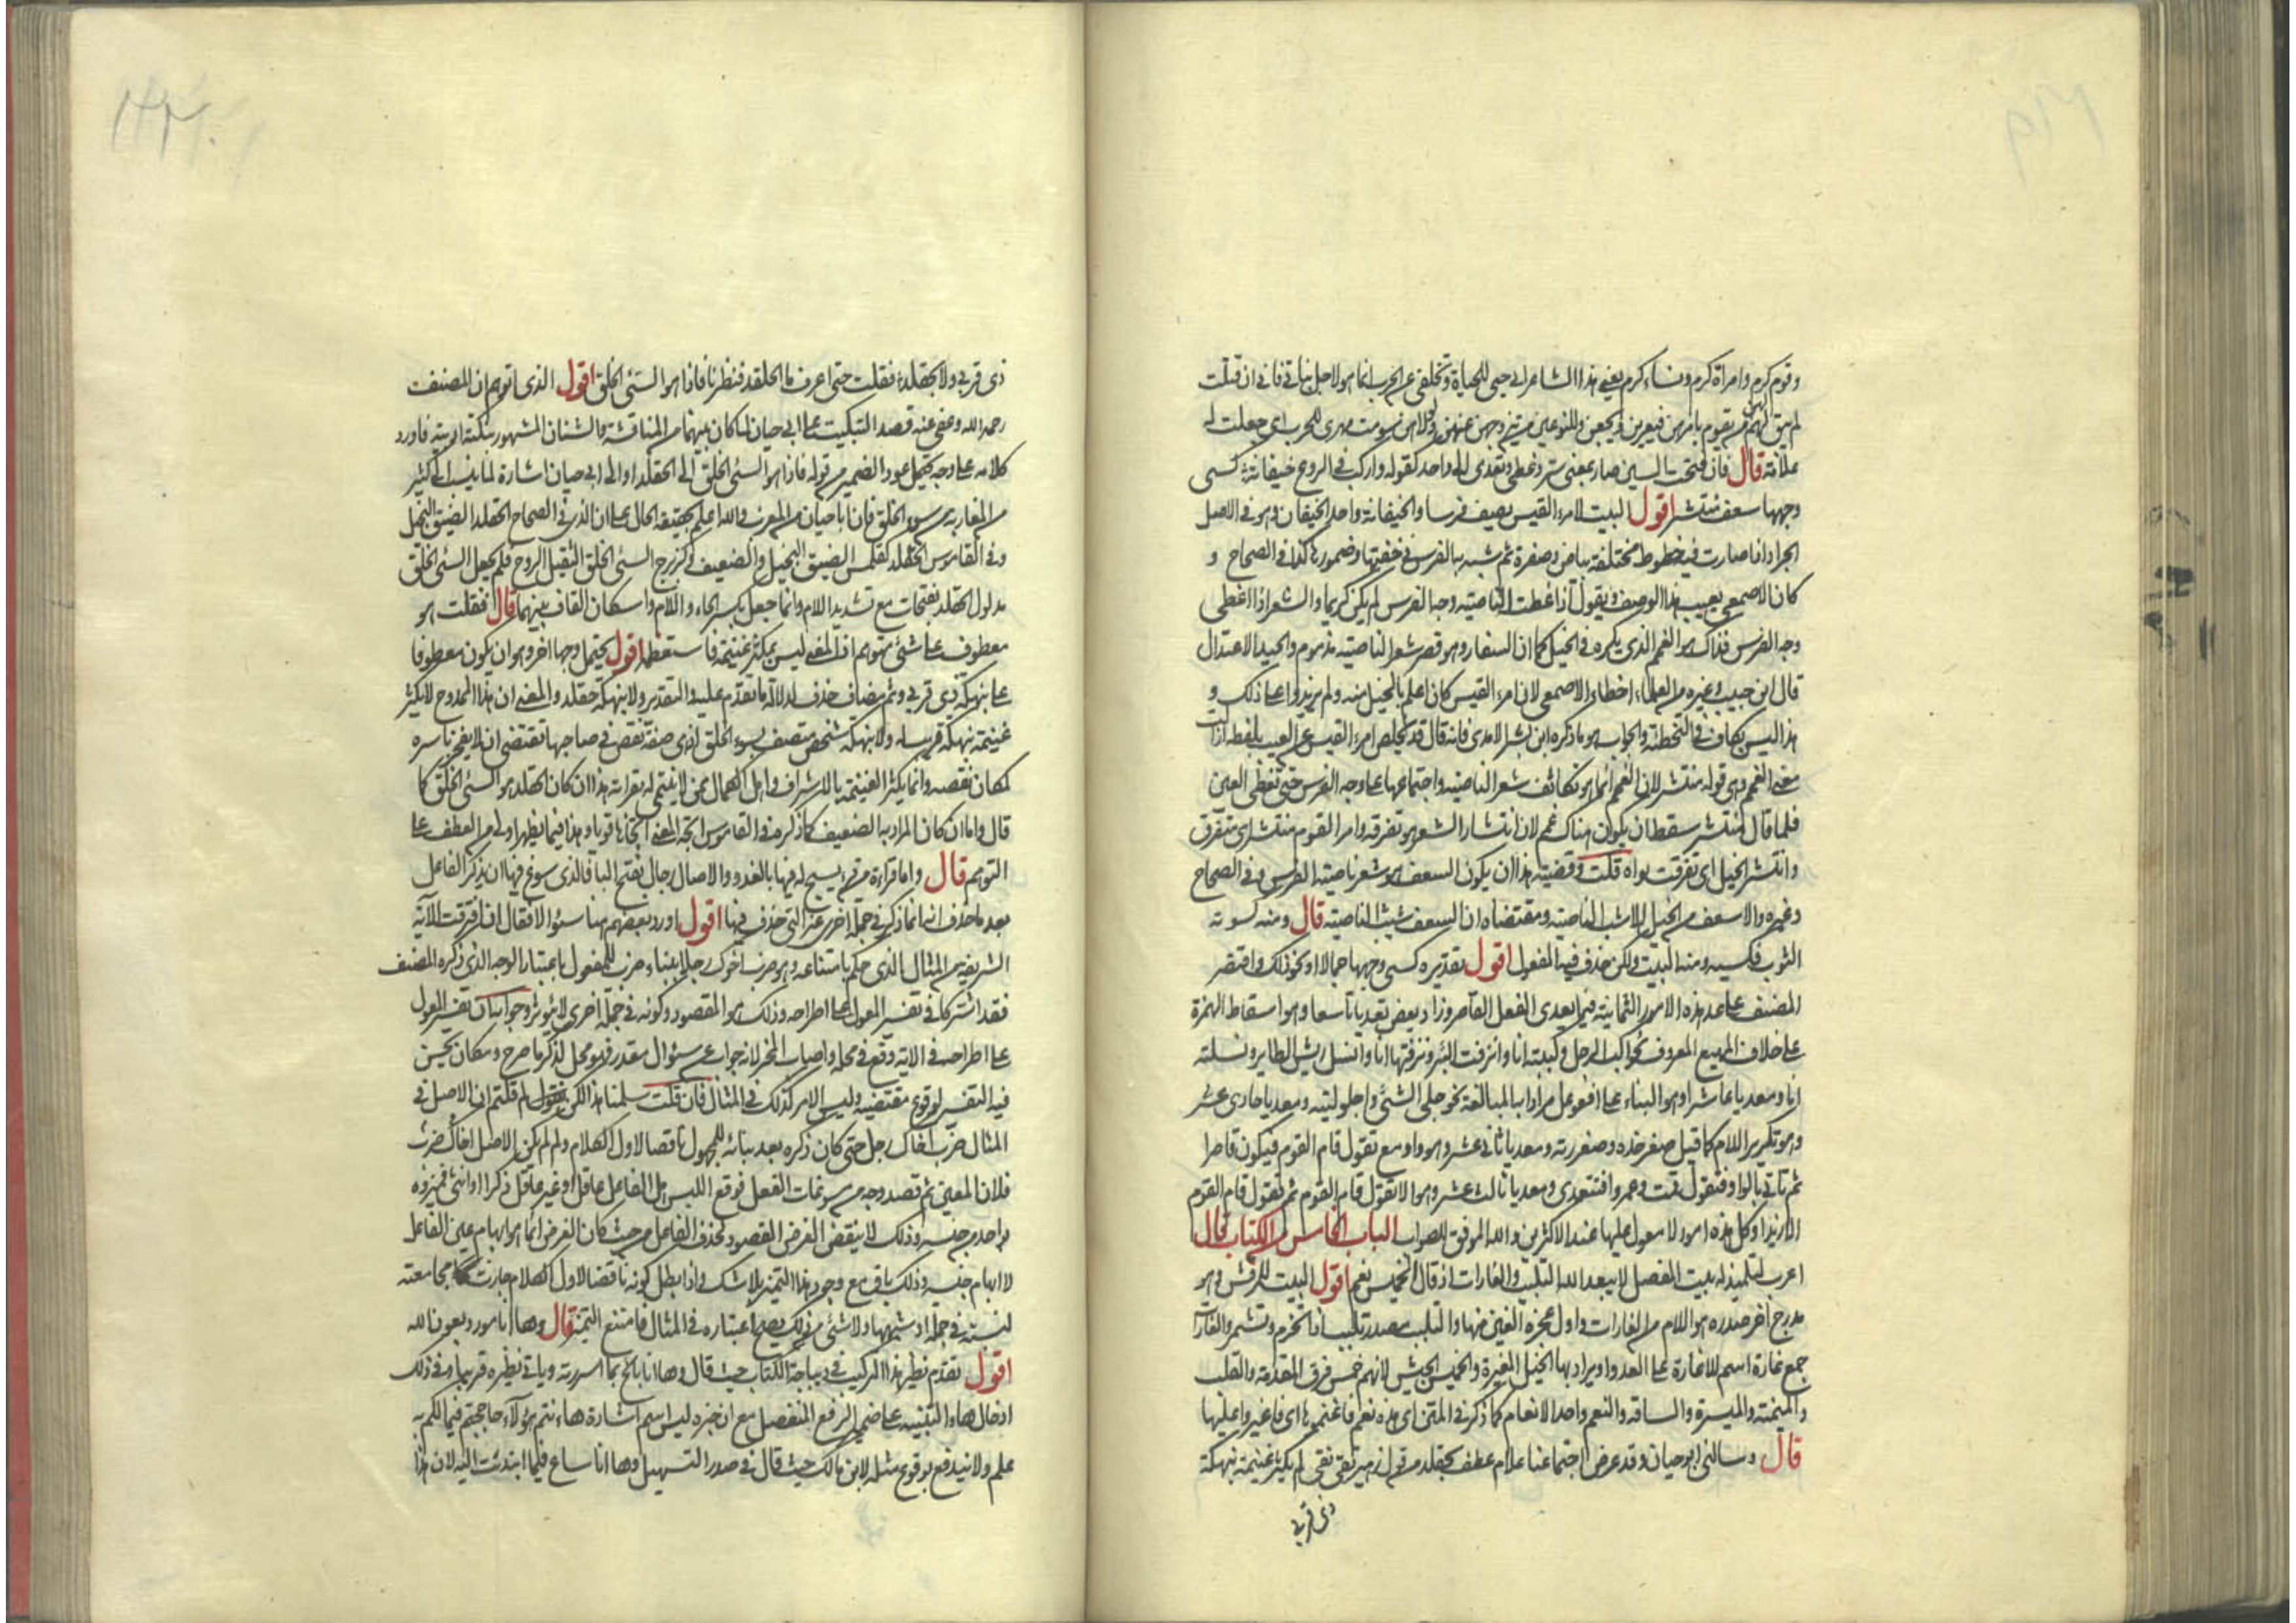 وقوم كرم وامرأة كرم ونساء كرم يعني هذا الشاعر ان حبي للحياة وتخلفي عن الحرب انما هو لاجل بناتي فاني ان قتلت
لم يبق لهن من يقوم بامرهن فيعرين ويجعن
علامة قال فان فتحت السين صار بمعنى ستر وغطى وتعدى الى واحد كقوله واركب في الروع خيفانة كسى
وجهها سعف منتشر اقول البيت لامرء القيس يصف فرسا والخيفانة واحد الخيفان وهو في الاصل
الجراد اذا صارت فيه خطوط مختلفة بياض وصفرة ثم شبه به الفرس في خفتها وضمورها كذا في الصحاح و
كان الاصمعي يعيب هذا الوصف ويقول اذا غطت الناصية وجه الفرس لم يكن كريما والشعر اذا غطى
وجه الفرس فذاك هو الغمم الذي يكره في الخيل كما ان السفار وهو قصر شعر الناصية مذموم والجيد الاعتدال
قال ابن حبيب وغيره من العلماء اخطاء الاصمعي لان امرء القيس كان اعلم بالخيل منه ولم يزيدوا على ذلك و
هذا ليس بكاف في التخطئة والجواب هو ما ذكره ابن بشر الامدي فانه قال قد تخلص امرء القيس عن العيب بلفظة ازالت
معنى الغمم وهي قوله منتشر لان الغمم انما هو تكاثف شعر الناصية واجتماعها على وجه الفرس حتى تغطى العين
فلما قال منتشر سقط ان يكون هناك غمم لان انتشار الشعر هو تفرقه وامر القوم منتشر اي متفرق
وانتشر الخيل اي تفرقت بواه قلت وقضية هذا ان يكون السعف هو شعر ناصية الفرس وفي الصحاح
وغيره والاسعف من الخيل الاشيب الناصية ومقتضاه ان السعف شيب الناصية قال ومنه كسوته
الثوب فكسيه ومنه البيت ولكن حذف فيه المفعول اقول تقديره كسى وجهها جمالا او نحو ذلك واقتصر
المصنف على عد هذه الامور الثمانية فيما يعدى الفعل القاصر وزاد بعض تعديا تاسعا وهو اسقاط الهمزة
على خلاف المهيع المعروف نحو اكب الرجل وكببته انا وانزفت البئر ونزفتها انا وانسل ريش الطاير ونسلته
انا ومعديا عاشرا وهو البناء على افعوعل مرادا به المبالغة نحو حلى الشئ واحلوليته ومعديا حادى عشر
وهو تكرير اللام كما قيل صعر خده وصعررته ومعديا ثاني عشر وهو واو مع تقول قام القوم فيكون قاصرا
ثم تاتي بالواو فتقول قمت وعمروا فتتعدى ومعديا ثالث عشر وهو الا تقول قام القوم ثم تقول قام القوم
الا زيدا وكل هذه امور لا معول عليها عند الاكثرين والله الموفق للصواب الباب الخامس من الكتاب قال
اعرب لتلميذ له بيت المفصل لا يبعد الله التلبب والغارات اذ قال الخميس نعم اقول البيت للمرقش وهو
مدرج اخر صدره هو اللام من الغارات واول عجزه الغين منها والتلبب مصدر تلبب اذا تحزم وتشمر والغارات
جمع غارة اسم للاغارة على العدو ويراد بها الخيل المغيرة والخميس الجيش لانهم خمس فرق المقدمة والقلب
والميمنة والميسرة والساقه والنعم واحد الانعام كما ذكر في المتن اي هذه نعم فاغنموها اي فاغيروا عليها
قال وسالني ابو حيان وقد عرض اجتماعنا علام عطف بحقلد من قول زهير تقي نقي لم يكثر غنيمة بنهكة
ذي قربى
ذى قربى ولا بحقلد فقلت حتى اعرف ما الحقلد فنظرنا فاذا هو السئ الخلق اقول الذي اتوهم ان المصنف
رحمه الله وعفى عنه قصد التبكيت على ابي حيان لما كان بينهما من المناقشة والشنان المشهور فاورد
كلامه على وجه يحتمل عود الضمير من قوله فاذا هو السئ الخلق الى الحقلد او الى ابي حيان اشارة لما ينسب الى كثير
من المغاربة من سوء الخلق فان ابا حيان من المغرب والله اعلم بحقيقة الحال على ان الذي في الصحاح الحقلد الضيق البخيل
وفي القاموس الحقلد كعملس الضيق البخيل والضعيف وكزبرج السئ الخلق الثقيل الروح فلم يجعل السئ الخلق
مدلول الحقلد بفتحات مع تشديد اللام وانما جعل بكسر الحاء واللام واسكان القاف بينهما قال فقلت هو
معطوف على شئ متوهم اذ المعنى ليس بمكثر غنيمة فاستعظمه اقول يحتمل وجها اخر وهو ان يكون معطوفا
على بنهكة ذى قربى وثم مضاف حذف لدلالة ما تقدم عليه والتقدير ولا بنهكة حقلد والمعنى ان هذا الممدوح لا يكثر
غنيمة بنهكة قريب له ولا بنهكة شخص متصف بسوء الخلق اذ هي صفة نقص في صاحبها تقتضي ان لا يفخر باسره
لمكان نقصه وانما يكثر الغنيمة بالاشراف واهل الكمال ممن لا ينتمى له بقرابة هذا ان كان الحقلد هو السئ الخلق كما
قال واما ان كان المراد به الضعيف كما ذكر في القاموس اتجه المعنى اتجاها قويا وهذا فيما يظهر اولى من العطف على
التوهم قال واما قراءة من قرء يسبح له فيها بالغدو والاصال رجال بفتح الباء فالذي سوغ فيها ان يذكر الفاعل
بعد ما حذف انه انما ذكر في جملة اخرى غير التي حذف فيها اقول اورد بعضهم هنا سؤالا فقال افترقت الآية
الشريفة من المثال الذي حكم بامتناعه وهو ضرب اخوك رجل ببناء ضرب للمفعول باعتبار الوجه الذي ذكره المصنف
فقد اشتركا في تفسير المعول على اطراحه وذلك هو المقصود وكونه في جملة اخرى لا يؤثر وجوابه ان تفسير المعول
على اطراحه في الاية وقع في محله واصاب المحز لانه جواب عن سؤال مقدر فهو محل لذكر ما طرح ومكان يحسن
فيه التفسير لوقوع مقتضيه وليس الامر كذلك في المثال فان قلت سلمنا هذا لكن نقول لم قلتم ان الاصل في
المثال ضرب اخاك رجل حتى كان ذكره بعد بنائه للمجهول نقضا لاول الكلام ولم لم يكن الاصل اخاك ضرب
فلان المعين ثم قصد وجه من مسوغات الفعل فوقع اللبس هل الفاعل عاقل او غير عاقل ذكرا او انثى فميزوه
بواحد من جنسه وذلك لا ينقض الغرض المقصود بحذف الفاعل من حيث كان الغرض انما هو ابهام عين الفاعل
لا ابهام جنسه وذلك باق مع وجود هذا التمييز بلا شك واذا بطل كونه ناقضا لاول الكلام جازت مجامعته
قال وها انا مورد بعون الله
اقول تقدم نظير هذا التركيب في ديباجة الكتاب حيث قال وها انا بائح بما اسررته وياتي نظيره قريبا وفي ذلك
ادخال هاء التنبيه على ضمير الرفع المنفصل مع ان خبره ليس اسم اشارة هاء نتم هؤلاء حاججتم فيما لكم به
علم ولا يندفع بوقوع مثله لابن مالك حيث قال في صدر التسهيل وها انا ساع فيما انتدبت اليه لان هذا